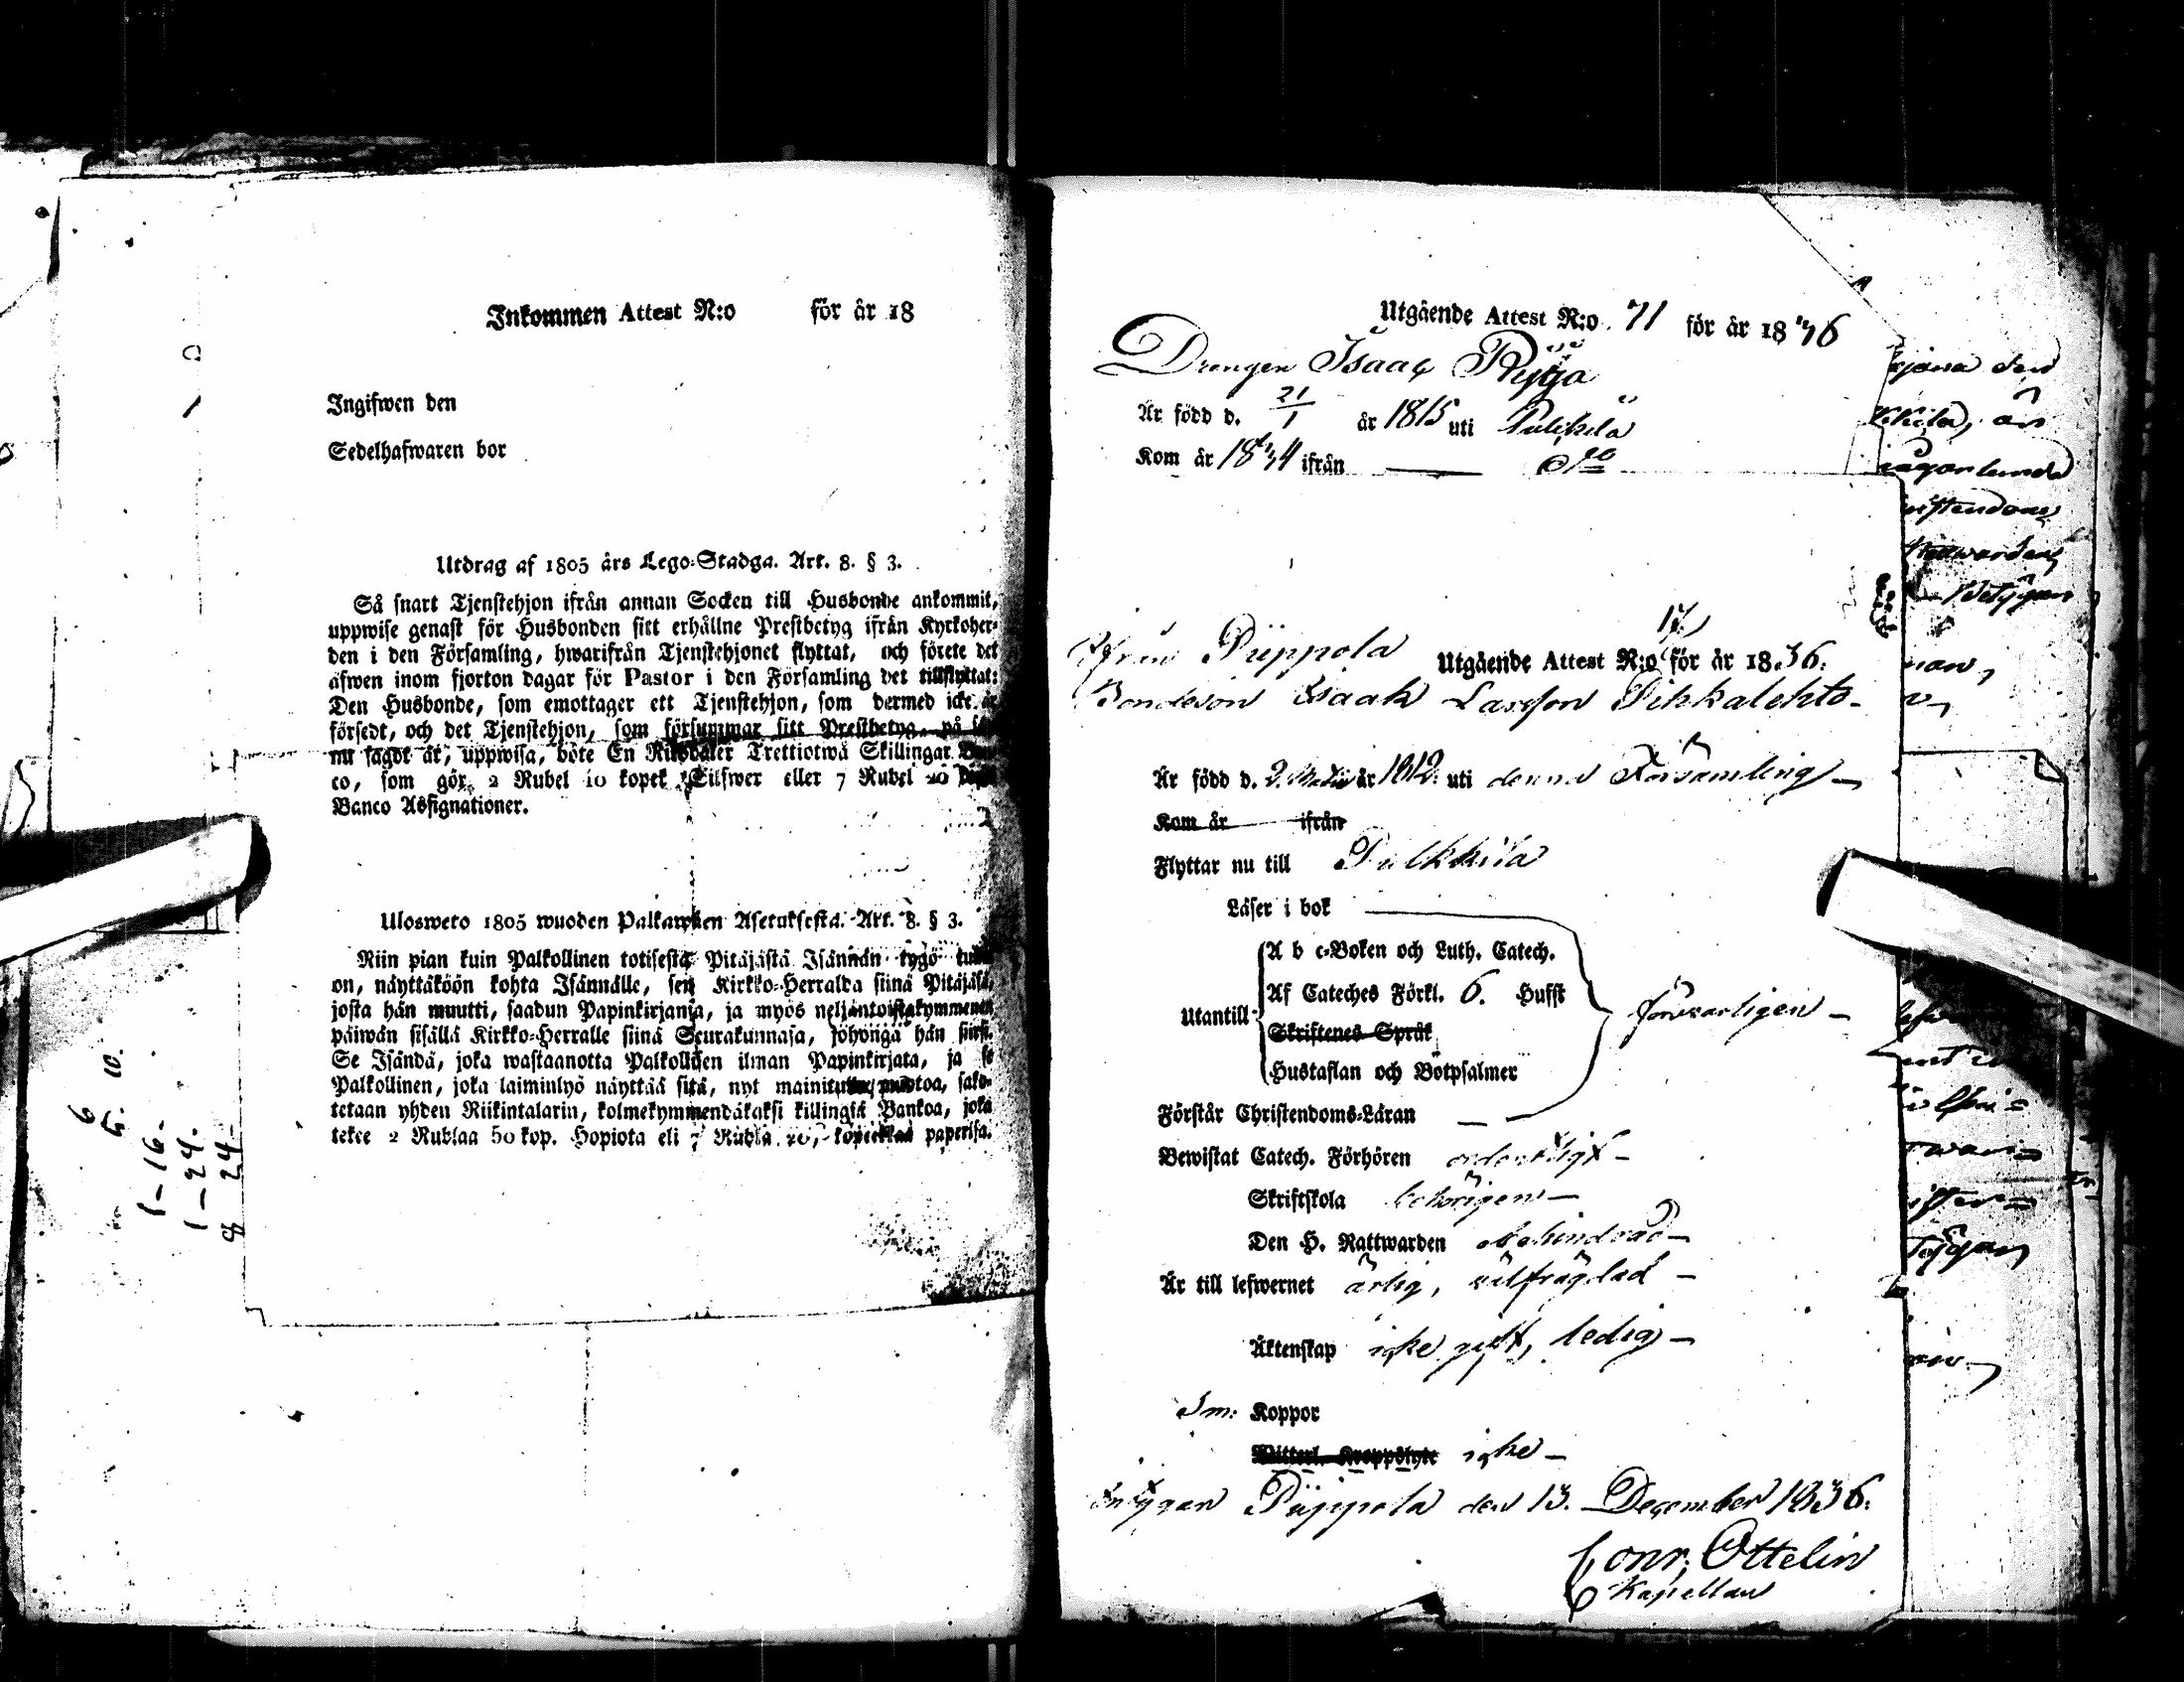 Inkommen Attest N:o för år 18
Ingifwen den
Sedelhafwaren bor
Utdrag af 1805 års Lego-Stadga. Art. 8. § 3.
Så snart Tjenstehjon ifrån annan Socken till Husbonde ankommit,
uppwise genast för Husbonden sitt erhållne Prestbetyg ifrån Kyrkoher-
den i den Församling, hwarifrån Tjenstehjonet flyttat, och förete det
äfwen inom fjorton dagar för Pastor i den Församling det tillflyttat:
Den Husbonde, som emottager ett Tjenstehjon, som dermed icke är
försedt, och det Tjenstehjon, som försummar sitt Prestbetyg, på
nu sagdt är, uppwisa, böte En Riksdaler Trettiotwå Skillingar
co, som gör 2 Rubel 10 kopek Silfwer eller 7 Rubel 20
Banco Assignationer.
Ulosweto 1805 wuoden Palkawäen Asetuksesta. Art. 8. § 3.
Niin pian kuin Palkollinen totisesta Pitäjästä Isännän tygö
on, näyttäköön kohta Isännälle, sen Kirkko-Herralda siinä Pitäjäsä,
josta hän muutti, saadun Papinkirjansa, ja myös neljäntoistakymmenen
päiwän sisällä Kirkko-Herralle siinä Seurakunnasa, johonga hän siirsi.
Se Isändä, joka wastaanotta Palkollisen ilman Papinkirjata, ja se
Palkollinen, joka laiminlyö näyttää sitä, nyt mainitulla muotoa, sako-
tetaan yhden Riikintalarin, kolmekymmendäkaksi killingiä Bankoa, joka
tekee 2 Rublaa 50 kop. Hopiota eli 7 Rubla 20, kopeekkaa paperisa.
6
5. 10.
1-16.
1-24.
8 24
Utgående Attest N:o. 71 för år 1836
Drengen Isaac
Är född d. 21/1 år 1815 uti Pulkila
Kom år 1834 ifrån
Ifrån Piippola Utgående Attest N:o 17 för år 1836.
Bondeson Isaak Larsson Pihkalehto-
Är född d. 2. år 1812. uti denna Församling -
Kom år ifrån
Flyttar nu till Pulkkila
Läser i bok
A b c-Boken och Luth. Catech.
Af Cateches Förkl. 6. Hufst
Utantill försvarligen -
Skriftenes Språk
Hustaflan och Botpsalmer
Förstår Christendoms-Läran
Bewistat Catech. Förhören ordentligt -
Skriftskola behörigen -
Den H. Nattwarden obehindrad -
Är till lefwernet ärlig, välfrägdad -
Äktenskap icke gift, ledig -
Koppor
icke -
Intygar Piippola den 13. December 1836.
Conr. Ottelin
Kapellan